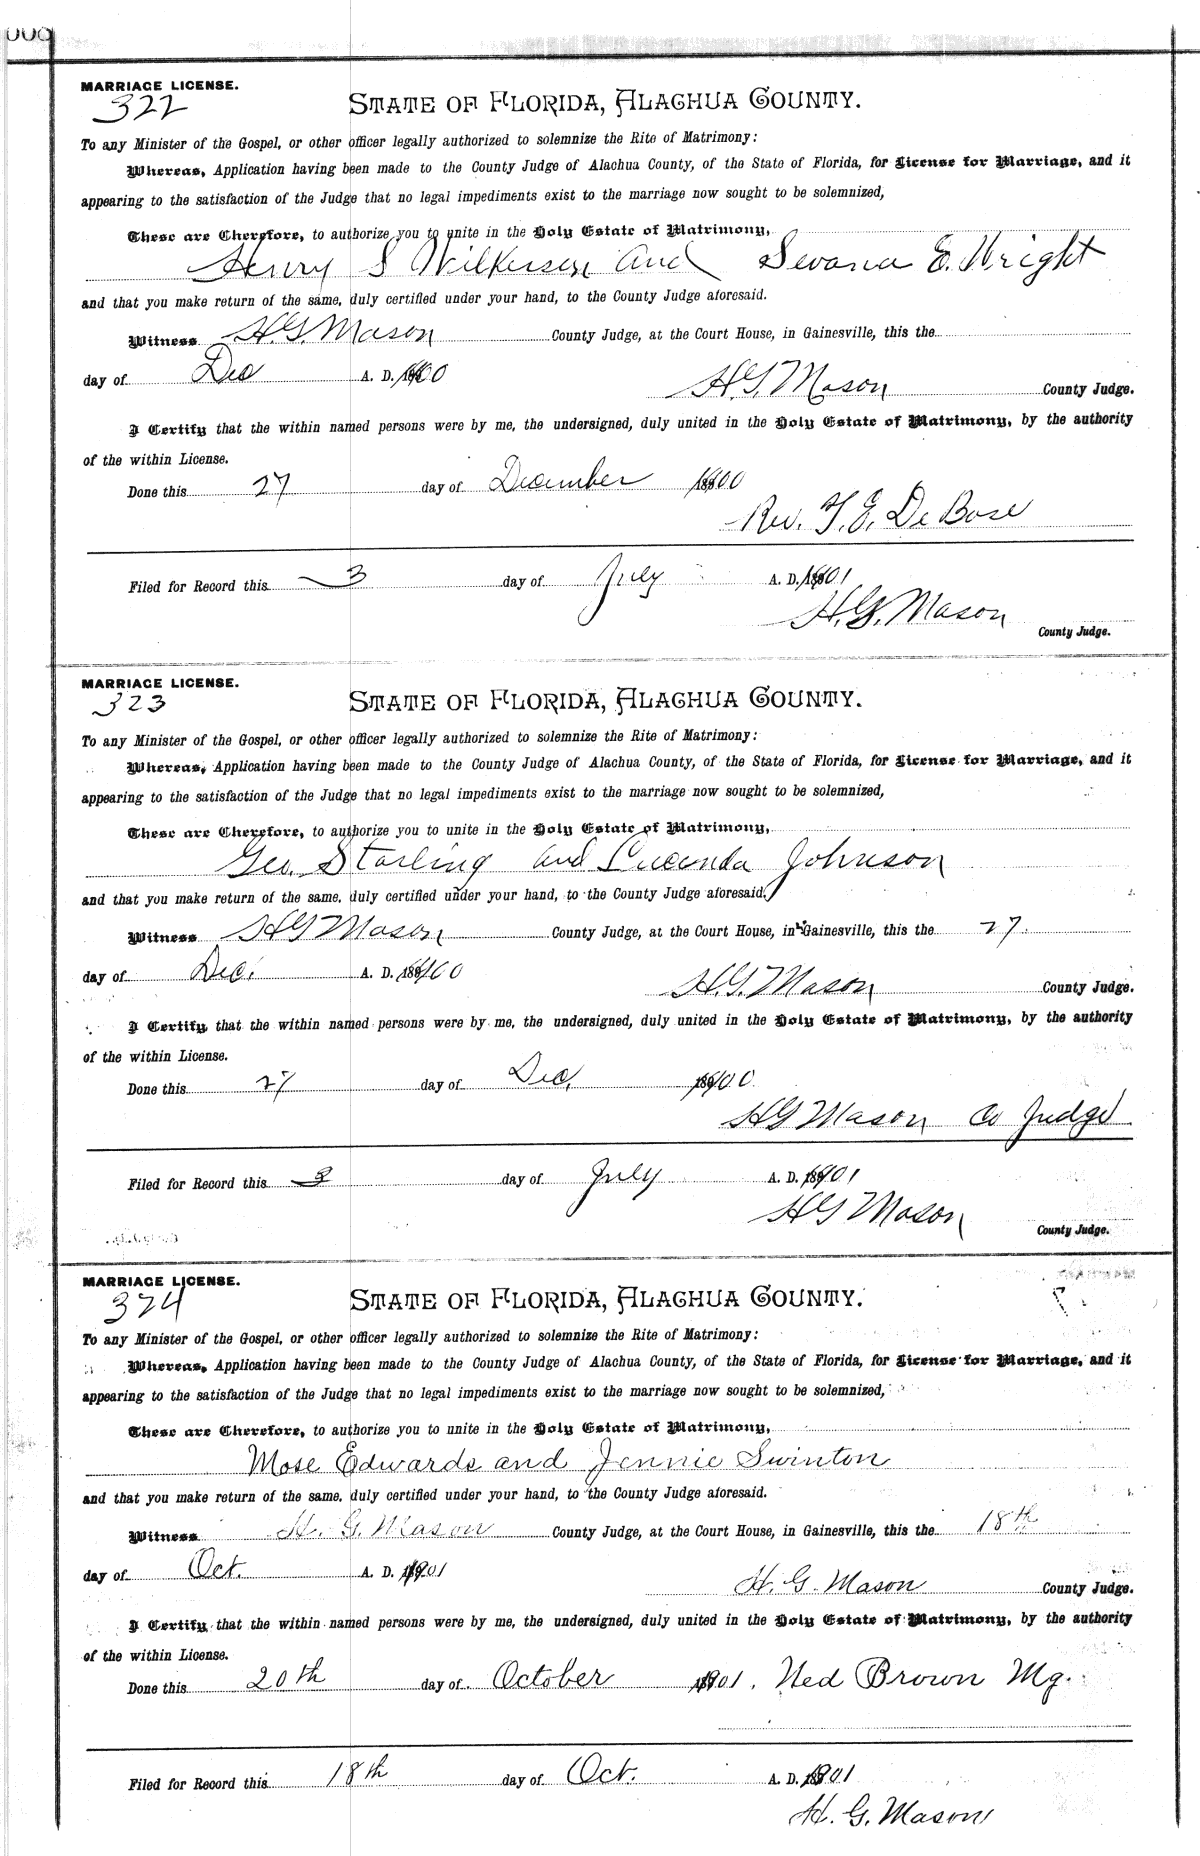 008
MARRIAGE LICENSE.
322
STATE OF FLORIDA, ALACHUA COUNTY.
To any Minister of the Gospel, or other officer legally authorized to solemnize the Rite of Matrimony:
Whereas, Application having been made to the County Judge of Alachua County, of the State of Florida, for License for Marriage, and it
appearing to the satisfaction of the Judge that no legal impediments exist to the marriage now sought to be solemnized,
These are Therefore, to authorize you to unite in the Holy Estate of Matrimony,
Henry S Wilkerson and Sevana E. Wright
and that you make return of the same, duly certified under your hand, to the County Judge aforesaid.
Witness H.G. Mason County Judge, at the Court House, in Gainesville, this the
day of Dec A. D. 1900
H.G. Mason County Judge.
I Certify that the within named persons were by me, the undersigned, duly united in the Holy Estate of Matrimony, by the authority
of the within License.
Done this 27 day of December 1900
Rev. T. E. De Bose
Filed for Record this 3 day of July A. D. 1901
H. G. Mason
County Judge.
MARRIAGE LICENSE.
323
STATE OF FLORIDA, ALACHUA COUNTY.
To any Minister of the Gospel, or other officer legally authorized to solemnize the Rite of Matrimony:
Whereas, Application having been made to the County Judge of Alachua County, of the State of Florida, for License for Marriage, and it
appearing to the satisfaction of the Judge that no legal impediments exist to the marriage now sought to be solemnized,
These are Therefore, to authorize you to unite in the Holy Estate of Matrimony,
Geo. Starling and Lucinda Johnson
and that you make return of the same, duly certified under your hand, to the County Judge aforesaid.
Witness H G Mason County Judge, at the Court House, in Gainesville, this the 27.
day of Dec. A. D. 1900
H.G. Mason County Judge.
I Certify that the within named persons were by me, the undersigned, duly united in the Holy Estate of Matrimony, by the authority
of the within License.
Done this 27 day of Dec. 1900
H G Mason Co Judge
Filed for Record this 3 day of July A. D. 1901
H G Mason
County Judge.
MARRIAGE LICENSE.
324
STATE OF FLORIDA, ALACHUA COUNTY.
To any Minister of the Gospel, or other officer legally authorized to solemnize the Rite of Matrimony:
Whereas, Application having been made to the County Judge of Alachua County, of the State of Florida, for License for Marriage, and it
appearing to the satisfaction of the Judge that no legal impediments exist to the marriage now sought to be solemnized,
These are Therefore, to authorize you to unite in the Holy Estate of Matrimony,
Mose Edwards and Jennie Swinton
and that you make return of the same, duly certified under your hand, to the County Judge aforesaid.
Witness H. G. Mason County Judge, at the Court House, in Gainesville, this the 18th
day of Oct. A. D. 1901
H. G. Mason County Judge.
I Certify that the within named persons were by me, the undersigned, duly united in the Holy Estate of Matrimony, by the authority
of the within License.
Done this 20th day of October 1901. Ned Brown Mg.
Filed for Record this 18th day of Oct. A. D. 1901
H. G. Mason